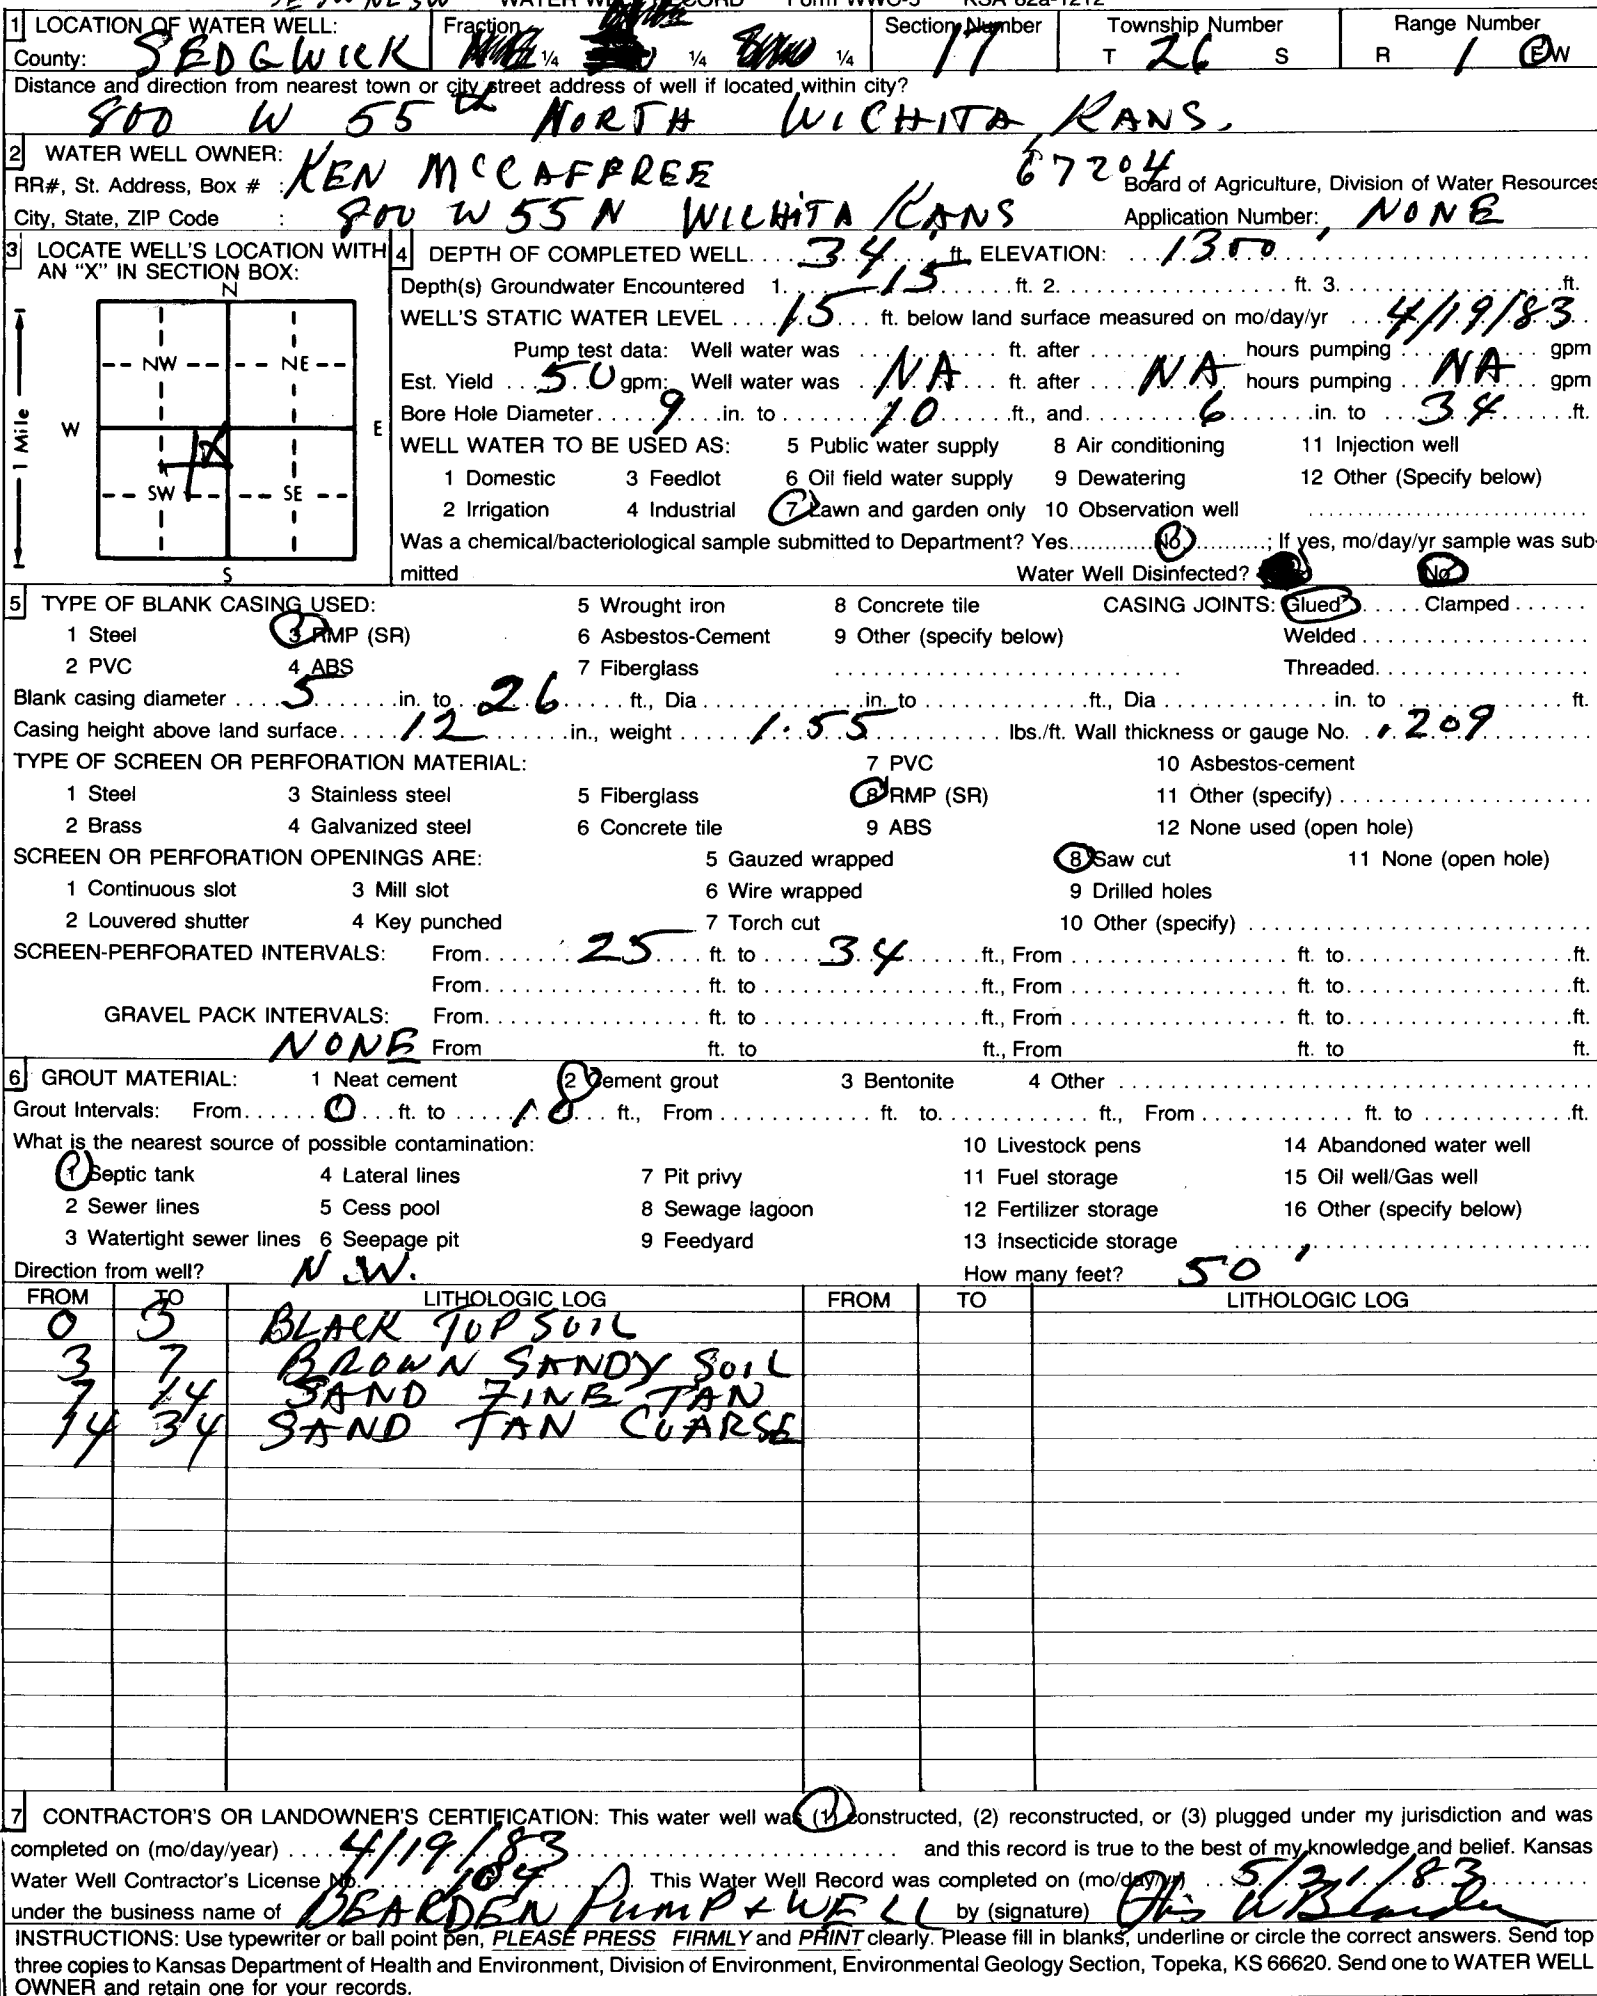 WATER WELL RECORD Form WWC-5 KSA 82a-1212
1 LOCATION OF WATER WELL: Fraction Section Number Township Number Range Number
County: SEDGWICK ¼ ¼ ¼ 17 T 26 S R 1 E W
Distance and direction from nearest town or city street address of well if located within city?
800 W 55th NORTH WICHITA, KANS.
2 WATER WELL OWNER: KEN MCCAFFREE 67204
RR#, St. Address, Box # : Board of Agriculture, Division of Water Resources
City, State, ZIP Code : 800 W 55 N WICHITA KANS Application Number: NONE
3 LOCATE WELL'S LOCATION WITH AN "X" IN SECTION BOX:
N
NW NE
W E
SW SE
S
1 Mile
4 DEPTH OF COMPLETED WELL 34 ft. ELEVATION: 1300'
Depth(s) Groundwater Encountered 1. 15 ft. 2. ft. 3. ft.
WELL'S STATIC WATER LEVEL 15 ft. below land surface measured on mo/day/yr 4/19/83
Pump test data: Well water was ft. after hours pumping gpm
Est. Yield 50 gpm: Well water was NA ft. after NA hours pumping NA gpm
Bore Hole Diameter 9 in. to 10 ft., and 6 in. to 34 ft.
WELL WATER TO BE USED AS: 5 Public water supply 8 Air conditioning 11 Injection well
1 Domestic 3 Feedlot 6 Oil field water supply 9 Dewatering 12 Other (Specify below)
2 Irrigation 4 Industrial 7 Lawn and garden only 10 Observation well
Was a chemical/bacteriological sample submitted to Department? Yes No ; If yes, mo/day/yr sample was sub-
mitted Water Well Disinfected? No
5 TYPE OF BLANK CASING USED: 5 Wrought iron 8 Concrete tile CASING JOINTS: Glued Clamped
1 Steel 3 RMP (SR) 6 Asbestos-Cement 9 Other (specify below) Welded
2 PVC 4 ABS 7 Fiberglass Threaded
Blank casing diameter 5 in. to 26 ft., Dia in. to ft., Dia in. to ft.
Casing height above land surface 12 in., weight 1.55 lbs./ft. Wall thickness or gauge No. .209
TYPE OF SCREEN OR PERFORATION MATERIAL: 7 PVC 10 Asbestos-cement
1 Steel 3 Stainless steel 5 Fiberglass 8 RMP (SR) 11 Other (specify)
2 Brass 4 Galvanized steel 6 Concrete tile 9 ABS 12 None used (open hole)
SCREEN OR PERFORATION OPENINGS ARE: 5 Gauzed wrapped 8 Saw cut 11 None (open hole)
1 Continuous slot 3 Mill slot 6 Wire wrapped 9 Drilled holes
2 Louvered shutter 4 Key punched 7 Torch cut 10 Other (specify)
SCREEN-PERFORATED INTERVALS: From 25 ft. to 34 ft., From ft. to ft.
From ft. to ft., From ft. to ft.
GRAVEL PACK INTERVALS: From ft. to ft., From ft. to ft.
NONE From ft. to ft., From ft. to ft.
6 GROUT MATERIAL: 1 Neat cement 2 Cement grout 3 Bentonite 4 Other
Grout Intervals: From 0 ft. to 10 ft., From ft. to ft., From ft. to ft.
What is the nearest source of possible contamination: 10 Livestock pens 14 Abandoned water well
1 Septic tank 4 Lateral lines 7 Pit privy 11 Fuel storage 15 Oil well/Gas well
2 Sewer lines 5 Cess pool 8 Sewage lagoon 12 Fertilizer storage 16 Other (specify below)
3 Watertight sewer lines 6 Seepage pit 9 Feedyard 13 Insecticide storage
Direction from well? N.W. How many feet? 50'
FROM TO LITHOLOGIC LOG FROM TO LITHOLOGIC LOG
0 3 BLACK TOP SOIL
3 7 BROWN SANDY SOIL
7 14 SAND FINE TAN
14 34 SAND TAN COARSE
7 CONTRACTOR'S OR LANDOWNER'S CERTIFICATION: This water well was (1) constructed, (2) reconstructed, or (3) plugged under my jurisdiction and was
completed on (mo/day/year) 4/19/83 and this record is true to the best of my knowledge and belief. Kansas
Water Well Contractor's License No. 184 This Water Well Record was completed on (mo/day/yr) 5/31/83
under the business name of BEARDEN PUMP & WELL by (signature) Otis W Bearden
INSTRUCTIONS: Use typewriter or ball point pen, PLEASE PRESS FIRMLY and PRINT clearly. Please fill in blanks, underline or circle the correct answers. Send top
three copies to Kansas Department of Health and Environment, Division of Environment, Environmental Geology Section, Topeka, KS 66620. Send one to WATER WELL
OWNER and retain one for your records.